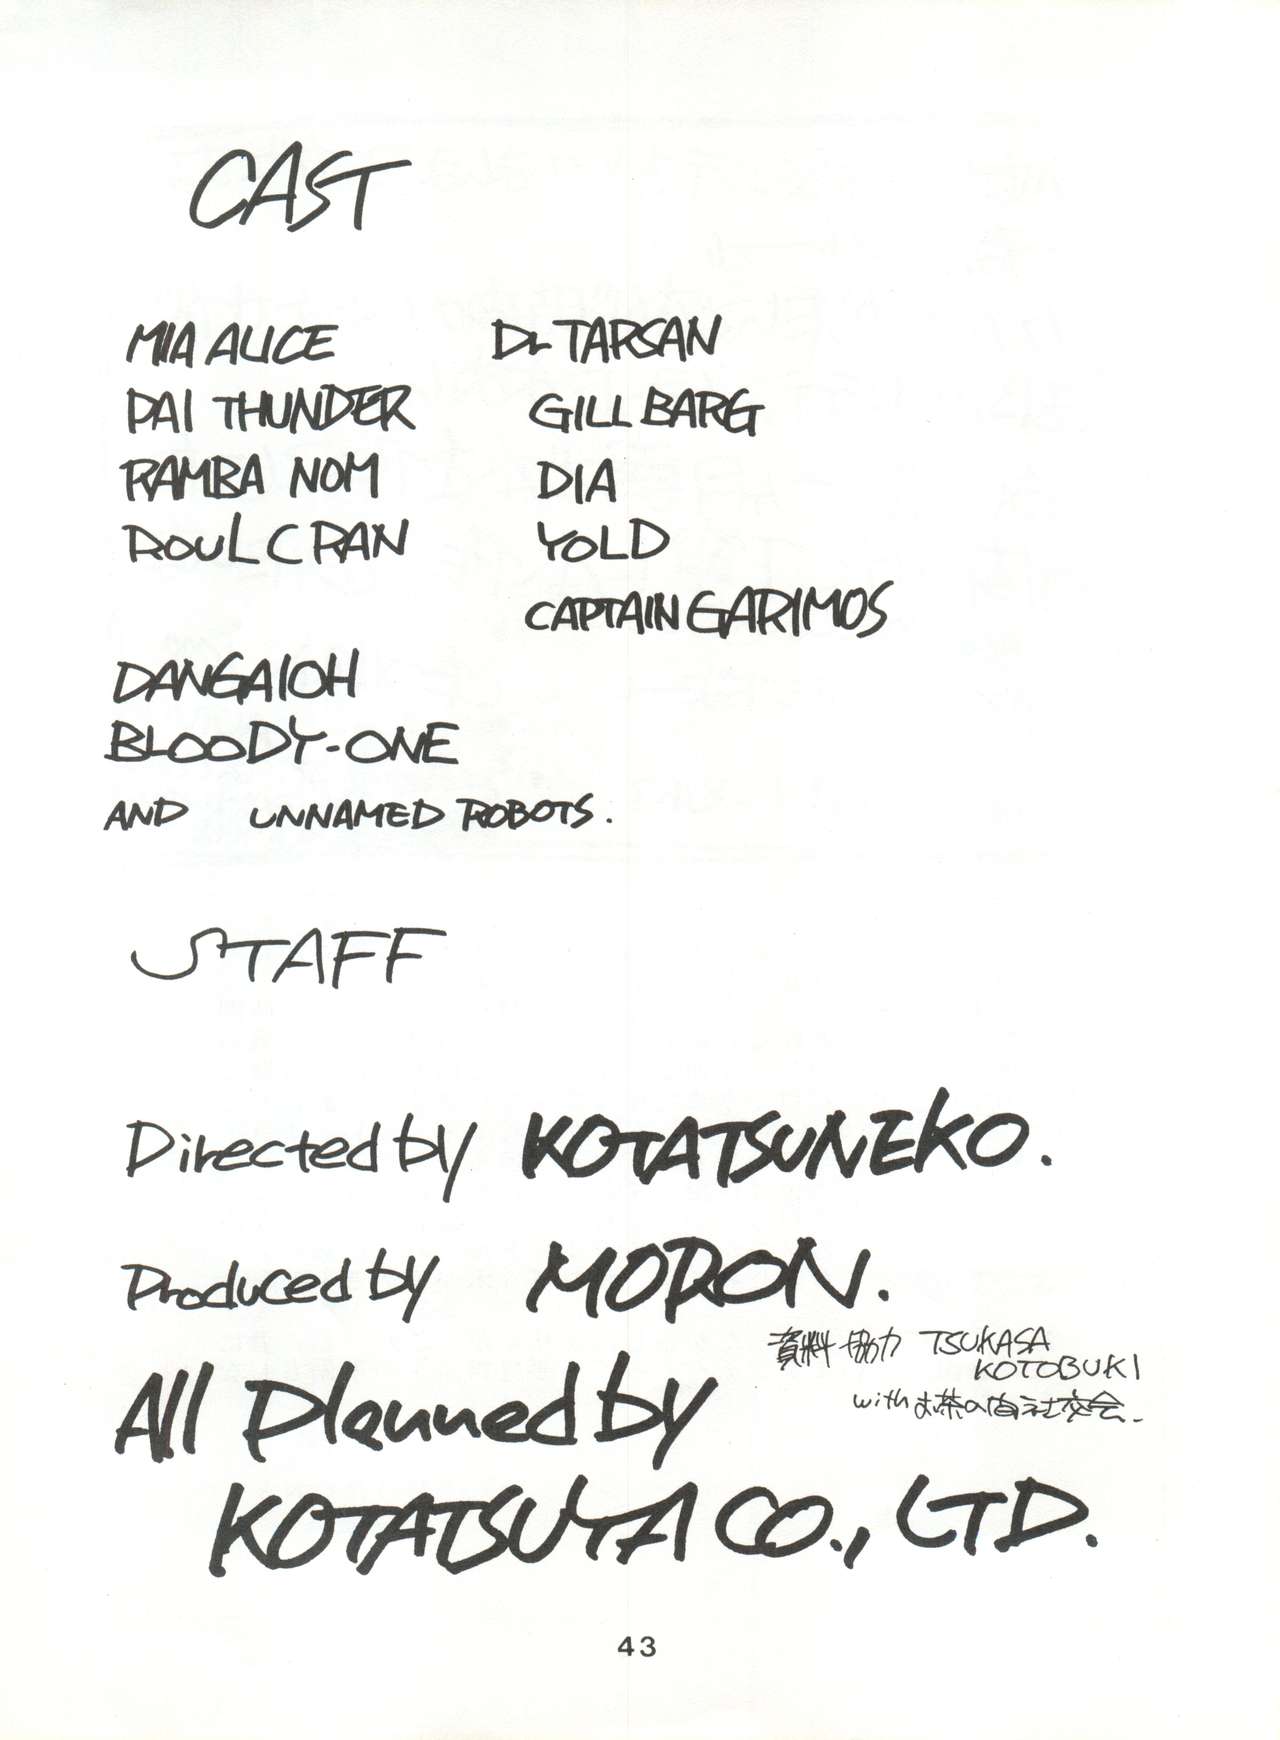 CAST
MIA ALICE
PAI THUNDER
RAMBA NOM
ROUL CRAN
Dr TARSAN
GILL BARG
DIA
YOLD
CAPTAIN GARIMOS
DANGAIOH
BLOODY-ONE
AND UNNAMED ROBOTS.
STAFF
Directed by KOTATSUNEKO.
Produced by MORON.
資料協力 TSUKASA
KOTOBUKI
with お茶の
社交会.
All Planned by
KOTATSUYA CO., LTD.
43